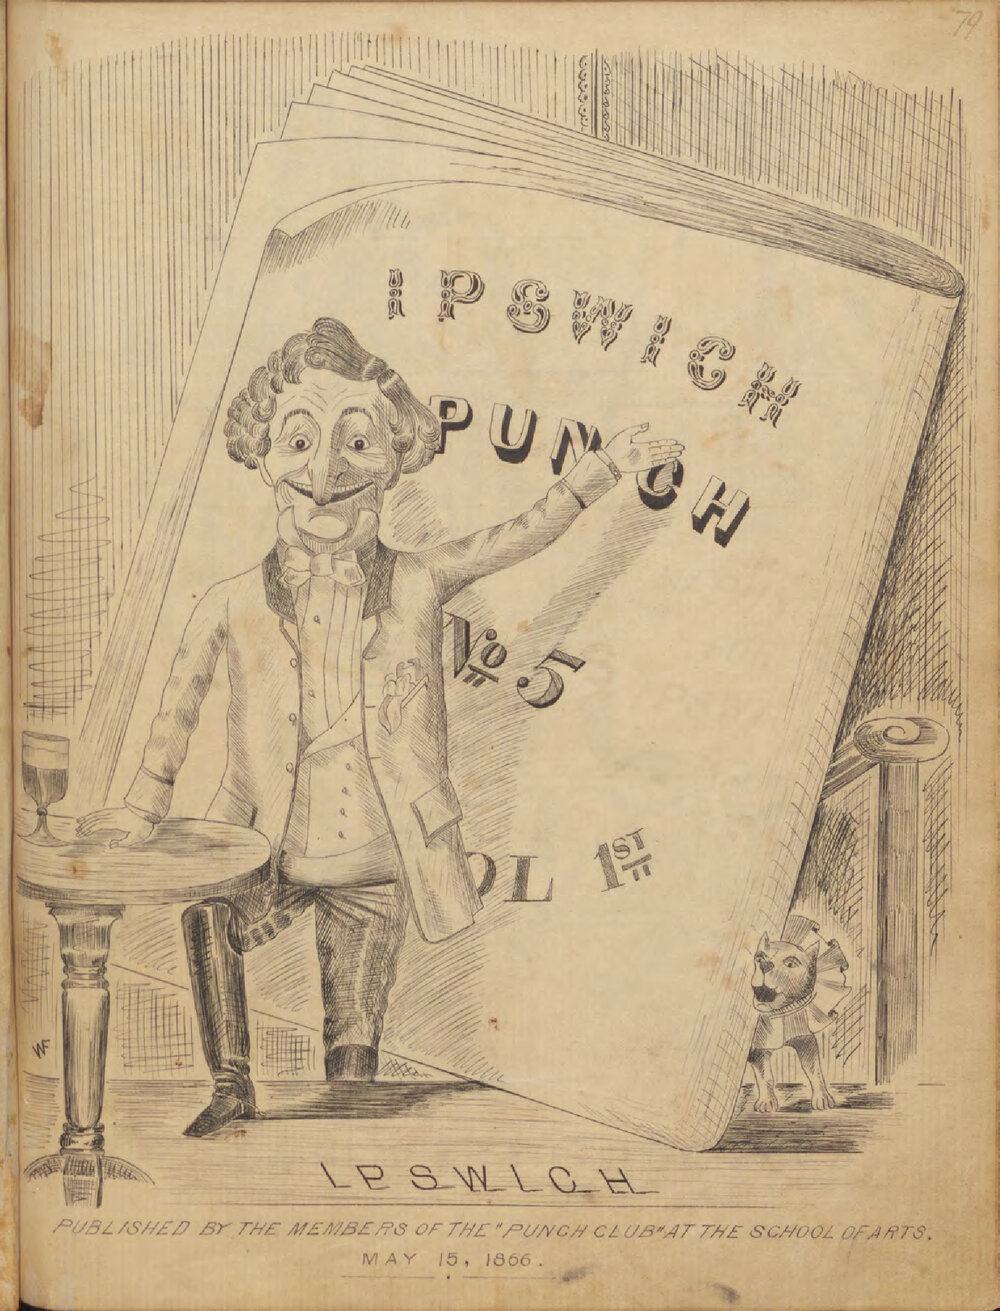 79
IPSWICH
PUNCH
No 5
OL 1ST
WF
IPSWICH
PUBLISHED BY THE MEMBERS OF THE "PUNCH CLUB" AT THE SCHOOL OF ARTS.
MAY 15, 1866.